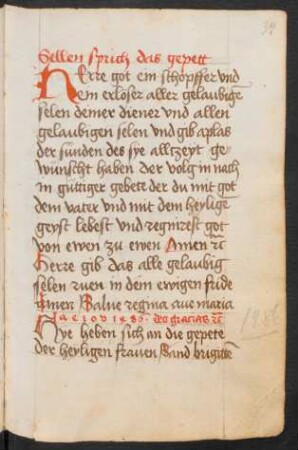 34
Sellen spruch das gepett
Herre got ein schopffer vnd
ein erloser aller gelaubigē
selen deiner diener vnd allen
gelaubigen selen vnd gib aplas
der sunden des sye alltzeyt ge
wunscht haben der volg in nach
in guttiger gebett der du mit got
dem vater vnd mit dem heyligē
geyst lebest vnd regnirest got
von ewen zu ewen Amen ꝛc
Herre gib das alle gelaubig
selen ruen in dem ewigen fride
Amen Salue regina aue maria
deo gracias ꝛc
Hye heben sich an die gepete
der heyligen frauen Sand brigittē
1486